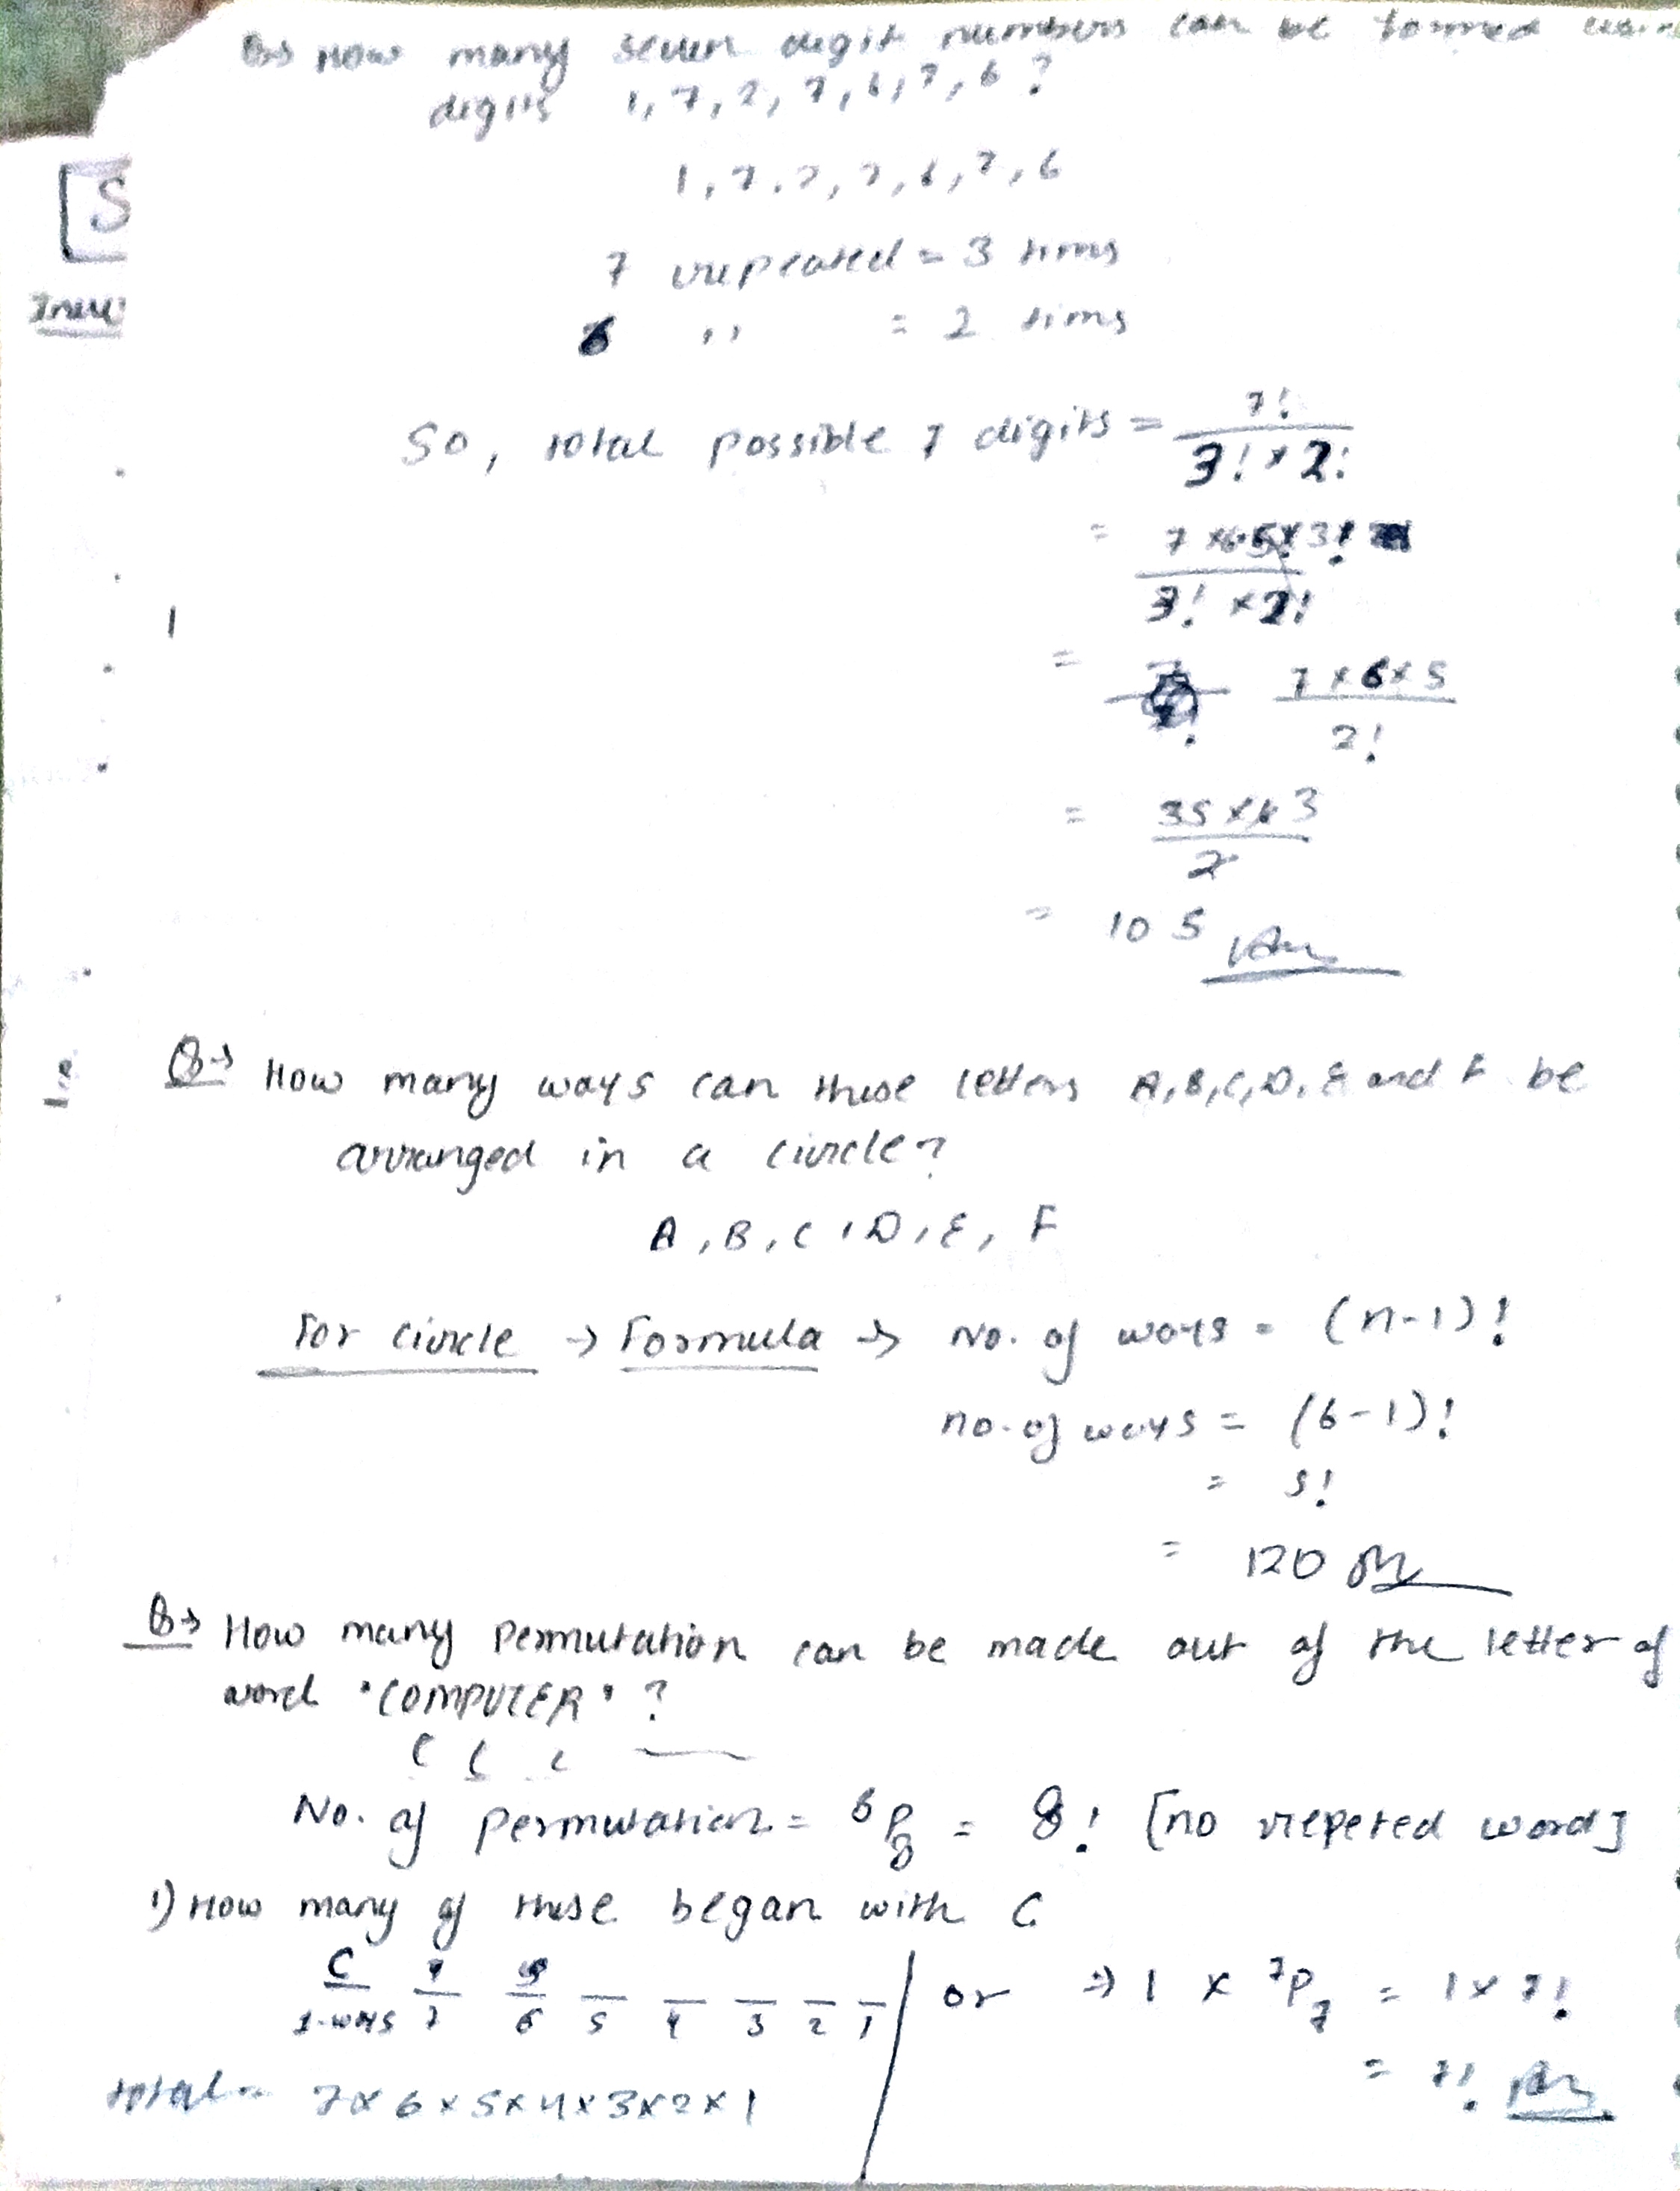 Q→ How many seven digit numbers can be formed
digits 1, 7, 2, 7, 6, 7, 6 ?
1, 7, 2, 7, 6, 7, 6
[S
7 repeated = 3 tims
6 ,, = 2 tims
So, total possible 7 digits = 7! / 3! × 2!
= 7 × 6 × 5! × 3! / 3! × 2!
= 7 × 6 × 5 / 2!
1
= 35 × 6 3 / 2
= 105 Ans
Q→ How many ways can these letters A, B, C, D, E and F be
arranged in a circle?
A, B, C, D, E, F
For circle → Formula → No. of ways = (n-1)!
no. of ways = (6-1)!
= 5!
= 120 Ans
Q→ How many permutation can be made out of the letter of
word "COMPUTER" ?
C C C
No. of permutation = 8P8 = 8! [no repeted word]
1) How many of these began with C
C
1-ways 7 6 5 4 3 2 1 or ⇒ 1 × 7P7 = 1 × 7!
= 7! Ans
total = 7 × 6 × 5 × 4 × 3 × 2 × 1